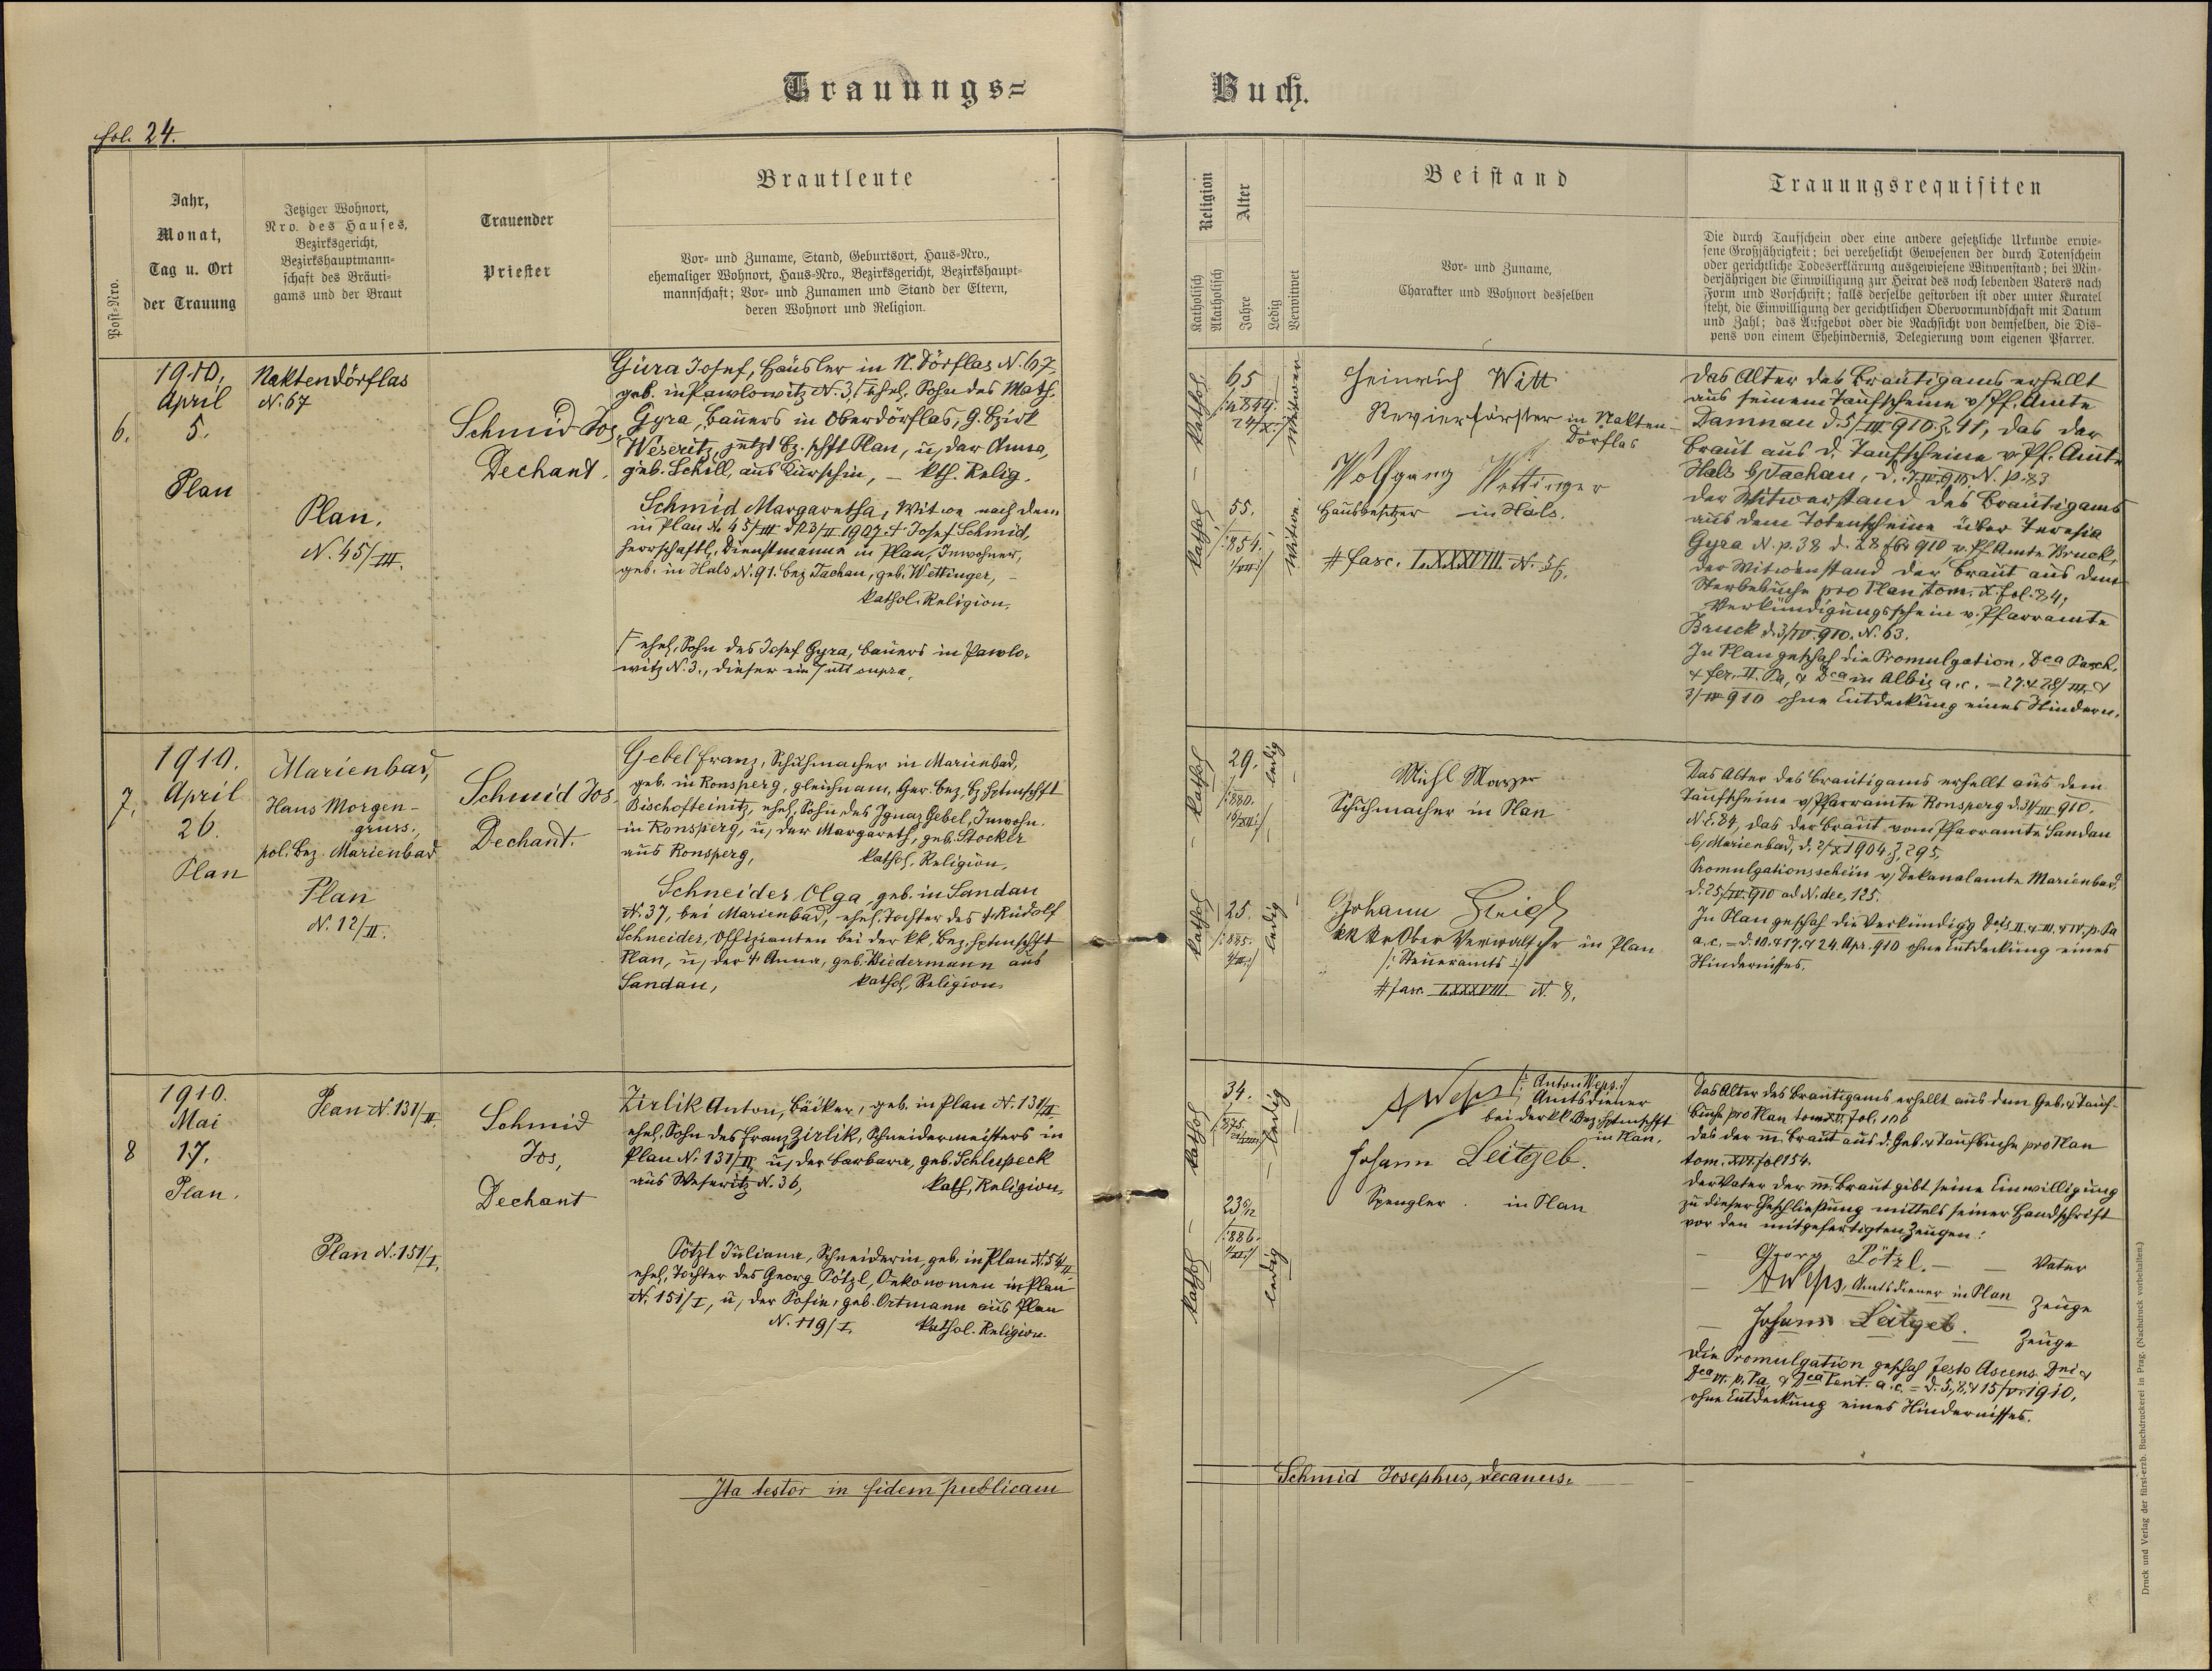 Trauungs=
Buch.
fol. 24.
Post=Nro.
Jahr,
Monat,
Tag u. Ort
der Trauung
Jetziger Wohnort,
Nro. des Hauses,
Bezirksgericht,
Bezirkshauptmann=
schaft des Bräuti=
gams und der Braut
Trauender
Priester
Brautleute
Vor= und Zuname, Stand, Geburtsort, Haus=Nro.,
ehemaliger Wohnort, Haus=Nro., Bezirksgericht, Bezirkshaupt=
mannschaft; Vor= und Zunamen und Stand der Eltern,
deren Wohnort und Religion.
Religion
Katholisch
Akatholisch
Alter
Jahre
Ledig
Verwitwet
Beistand
Vor= und Zuname,
Charakter und Wohnort desselben
Trauungsrequisiten
Die durch Taufschein oder eine andere gesetzliche Urkunde erwie=
sene Großjährigkeit; bei verehelicht Gewesenen der durch Totenschein
oder gerichtliche Todeserklärung ausgewiesene Witwenstand; bei Min=
derjährigen die Einwilligung zur Heirat des noch lebenden Vaters nach
Form und Vorschrift; falls derselbe gestorben ist oder unter Kuratel
steht, die Einwilligung der gerichtlichen Obervormundschaft mit Datum
und Zahl; das Aufgebot oder die Nachsicht von demselben, die Dis=
pens von einem Ehehindernis, Delegierung vom eigenen Pfarrer.
6.
1910.
April
5.
Plan
Naktendörflas
N. 67
Plan.
N. 45/III.
Schmid Jos.
Dechant.
Gura Josef, Häusler in N. Dörflas N. 67,
geb. in Pawlowitz N. 3, ehel. Sohn des Math.
Gyra, Bauers in Oberdörflas, G. Bzirk
Weseritz, jetzt Bz. schft Plan, u. der Anna,
geb. Schill, aus Kurschin, – kth. Relig.
Schmid Margaretha, Witwe nach dem
in Plan N. 45/III d. 23/II 1907 † Josef Schmid,
herrschaftl. Dienstmanne in Plan, Inwohner,
geb. in Hals N. 91. bez Tachau, geb. Wettinger, –
kathol. Religion.
ehel. Sohn des Josef Gyra, Bauers in Pawlo-
witz N. 3., dieser ein utt supra.
kathol.
65
24/XI
Witwer
kathol
55.
854.
Witwe.
Heinrich Witt
Revierförster in Nakten-
dörflas
Wolfgang Wettinger
Hausbesitzer in Hals.
# fasc. LXXXVIII. N. 56.
Das Alter des Bräutigams erhellt
aus seinem Taufscheine v. Pf. Amte
Damnau d. 5/III 910. Z. 41, das der
Braut aus d. Taufscheine v. Pf. Amte
Hals b/Tachau, N. p. 83
der Witwerstand des Bräutigams
aus dem Totenscheine über Teresia
Gyra N. p. 38 d. 28 910 v. Pf. Amte Bruck,
der Witwenstand der Braut aus dem
Sterbebuche pro Plan tom. X. fol. 84,
Verkündigungsschein v. Pfarramte
Bruck d. 3/IV. 910. N. 63.
In Plan geschah die Promulgation, Dca Pasch.
& fer. II. Pa, & Dca in Albis a. c. = 27. & 28/III. &
3/IV 910 ohne Entdeckung eines Hindern.
7.
1910.
April
26.
Plan
Marienbad,
Haus Morgen-
gruss.,
pol. Bez. Marienbad
Plan
N. 12/II.
Schmid Jos
Dechant.
Gebel Franz, Schuhmacher in Marienbad,
geb. in Ronsperg, gleichnam. Ger. Bez, Bz Hptmschft
Bischofteinitz, ehel. Sohn des Ignaz Gebel, Inwohn.
in Ronsperg, u. der Margareth, geb. Stocker
aus Ronsperg, kathol. Religion.
Schneider Olga, geb. in Sandau
N. 37, bei Marienbad, ehel. Tochter des † Rudolf
Schneider, Offizianten bei der kk. Bez. Hptmschft
Plan, u. der † Anna, geb. Biedermann aus
Sandau, kathol. Religion
kathol
29.
880.
ledig
kathol
25.
885.
ledig
Michl Mayer
Schuhmacher in Plan
Johann
kk Ober Verwalter in Plan
/: Steueramts :/
# fasc. LXXXVIII. N. 8.
Das Alter des Bräutigams erhellt aus dem
Taufscheine v. Pfarramte Ronsperg d. 31/III 910.
N. E. 84, das der Braut vom Pfarramte Sandau
b/Marienbad, d. 2/X 1904 Z. 295,
Promulgationsschein v. Dekanalamte Marienbad
d. 25./IV. 910 ad N. dec, 125.
In Plan geschah die Verkündigg Dcis II. & III. & IV. p. Pa
a. c. = d. 10. & 17. & 24. Apr. 910 ohne Entdeckung eines
Hindernisses.
8
1910.
Mai
17.
Plan.
Plan N. 131/II.
Plan N. 151/I.
Schmid
Jos,
Dechant
Zirlik Anton, Bäcker, geb. in Plan N. 131/II
ehel. Sohn des Franz Zirlik, Schneidermeisters in
Plan N. 131/II u. der Barbara, geb. Schluspeck
aus Weseritz N. 36, kath. Religion,
Pötzl Juliana, Schneiderin geb. in Plan N. 54/II
ehel. Tochter des Georg Pötzl, Oekonomen in Plan
N. 151/I, u. der Sofie, geb. Ortmann aus Plan
N. 119/I. kathol. Religion.
kathol
34.
875.
ledig
kathol
23
886.
ledig
A Weps /: Anton Weps :/
Amtsdiener
bei der kk. Bez. Hptmschft
in Plan.
Johann Leitgeb.
Spengler. in Plan
Das Alter des Bräutigams erhellt aus dem Geb. & Tauf-
buche pro Plan tom. XV. fol. 106
das der m. Braut aus d. Geb. & Taufbuche pro Plan
tom. XVI. fol 154.
der Vater der m. Braut gibt seine Einwilligung
zu dieser Eheschließung mittels seiner Handschrift
vor den mitgefertigten Zeugen:
Georg Pötzl. – – Vater
A Weps, Amtsdiener in Plan Zeuge
Johann Leitgeb. Zeuge
Die Promulgation geschah festo Ascens. Dni &
Dca p. Pa & Dca Pent. a. c. = d. 5., 8. & 15/V. 1910,
ohne Entdeckung eines Hindernisses.
Ita testor in fidem publicam
Schmid Josephus, Decanus.
Druck und Verlag der fürst-erzb. Buchdruckerei in Prag. (Nachdruck vorbehalten.)